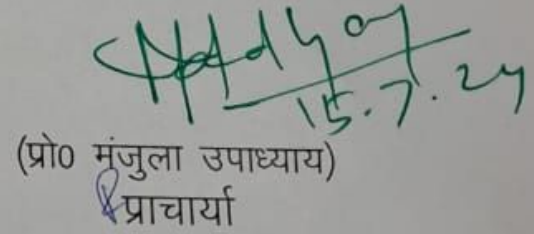 15.7.24
(प्रो0 मंजुला उपाध्याय)
प्राचार्या